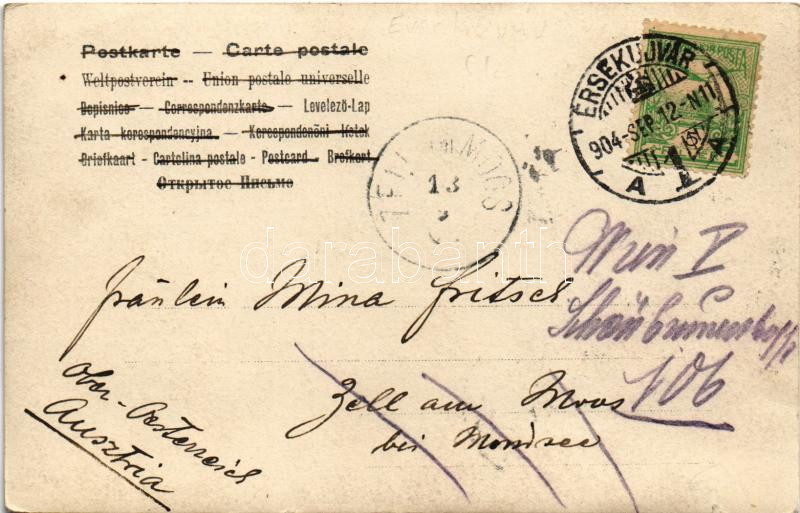 Postkarte — Carte postale
Weltpostverein -- Union postale universelle
Dopisnice — Correspondenzkarte — Levelező-Lap
Karta korespondencyjna — Korespondenční lístek
Briefkaart - Cartolina postale - Postcard - Brefkort
Открытое Письмо
ÉRSEKUJVÁR
904-SEP.12-N11
A 1 A
POSTA
ZELL am MOOS
13
9
darabanth
Fräulein Mina Fritsch
Zell am Moos
bei Mondsee
Ober-Oesterreich
Ausztria
Wien V
Schönbrunnerstr.
106